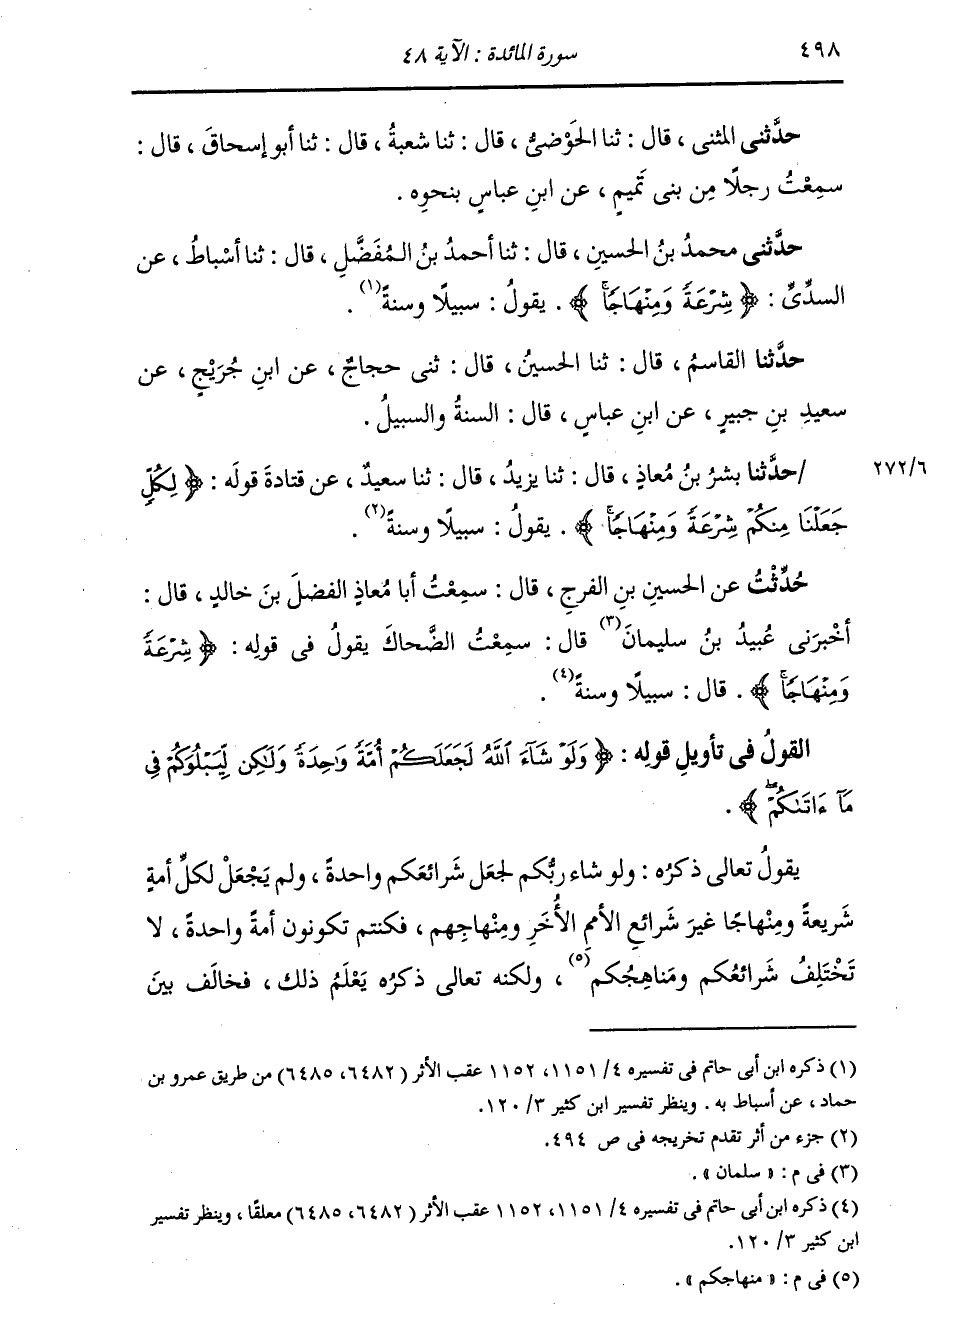 ٤٩٨ سورة المائدة : الآية ٤٨
حدَّثنى المثنى ، قال : ثنا الحَوْضىُّ ، قال : ثنا شعبةُ ، قال : ثنا أبو إسحاقَ ، قال :
سمِعْتُ رجلًا مِن بنى تَميمٍ ، عن ابنِ عباسٍ بنحوِه .
حدَّثنى محمدُ بنُ الحسينِ ، قال : ثنا أحمدُ بنُ المُفَضَّلِ ، قال : ثنا أسْباطُ ، عن
السدِّىِّ : ﴿ شِرْعَةً وَمِنْهَاجًا ﴾ . يقولُ : سبيلًا وسنةً(١) .
حدَّثنا القاسمُ ، قال : ثنا الحسينُ ، قال : ثنى حجاجٌ ، عن ابنِ جُرَيْجٍ ، عن
سعيدِ بنِ جبيرٍ ، عن ابنِ عباسٍ ، قال : السنةُ والسبيلُ .
٢٧٢/٦ /حدَّثنا بشرُ بنُ مُعاذٍ ، قال : ثنا يزيدُ ، قال : ثنا سعيدٌ ، عن قتادةَ قولَه : ﴿ لِكُلٍّ
جَعَلْنَا مِنكُمْ شِرْعَةً وَمِنْهَاجًا ﴾ . يقولُ : سبيلًا وسنةً(٢) .
حُدِّثْتُ عن الحسينِ بنِ الفرجِ ، قال : سمِعْتُ أبا مُعاذٍ الفضلَ بنَ خالدٍ ، قال :
أخْبرَنى عُبيدُ بنُ سليمانَ(٣) قال : سمِعْتُ الضَّحاكَ يقولُ فى قولِه : ﴿ شِرْعَةً
وَمِنْهَاجًا ﴾ . قال : سبيلًا وسنةً(٤) .
القولُ فى تأويلِ قولِه : ﴿ وَلَوْ شَآءَ ٱللَّهُ لَجَعَلَكُمْ أُمَّةً وَٰحِدَةً وَلَٰكِن لِّيَبْلُوَكُمْ فِى
مَآ ءَاتَىٰكُمْ ﴾ .
يقولُ تعالى ذكرُه : ولو شاء ربُّكم لجعَل شَرائعَكم واحدةً ، ولم يَجْعَلْ لكلِّ أمةٍ
شَريعةً ومِنْهاجًا غيرَ شَرائعِ الأممِ الأُخَرِ ومِنْهاجِهم ، فكنتم تكونون أمةً واحدةً ، لا
تَخْتَلِفُ شَرائعُكم ومَناهِجُكم(٥) ، ولكنه تعالى ذكرُه يَعْلَمُ ذلك ، فخالَف بينَ
(١) ذكره ابن أبى حاتم فى تفسيره ٤/ ١١٥١، ١١٥٢ عقب الأثر (٦٤٨٢، ٦٤٨٥) من طريق عمرو بن
حماد ، عن أسباط به . وينظر تفسير ابن كثير ٣/ ١٢٠.
(٢) جزء من أثر تقدم تخريجه فى ص ٤٩٤.
(٣) فى م : « سلمان » .
(٤) ذكره ابن أبى حاتم فى تفسيره ٤/ ١١٥١، ١١٥٢ عقب الأثر (٦٤٨٢، ٦٤٨٥) معلقًا ، وينظر تفسير
ابن كثير ٣/ ١٢٠.
(٥) فى م : « منهاجكم » .